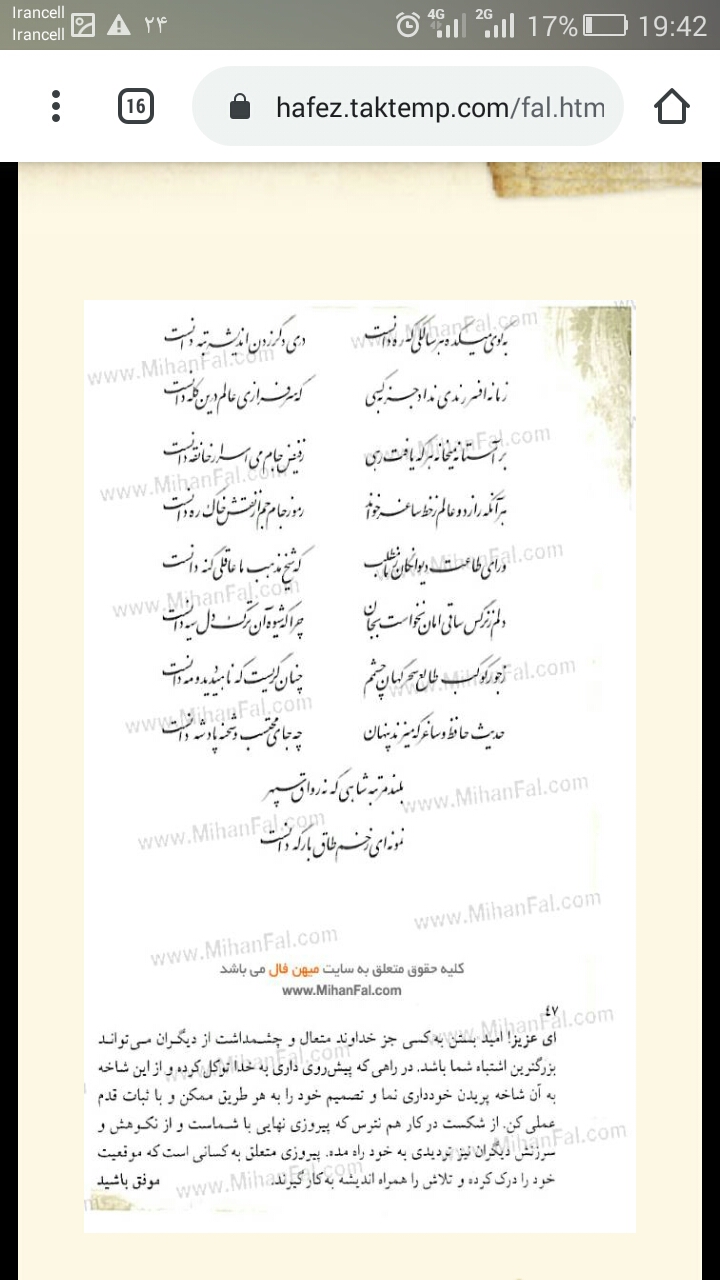 Irancell
Irancell
۲۴
4G
2G
17%
19:42
16
hafez.taktemp.com/fal.htm
به کوی میکده هر سالکی که ره دانست
دری دگر زدن اندیشه تبه دانست
زمانه افسر رندی نداد جز به کسی
که سرفرازی عالم درین کله دانست
بر آستانه میخانه هر که یافت رهی
ز فیض جام می اسرار خانقه دانست
هر آنکه راز دو عالم ز خط ساغر خواند
رموز جام جم از نقش خاک ره دانست
ورای طاعت دیوانگان ز ما مطلب
که شیخ مذهب ما عاقلی گنه دانست
دلم ز نرگس ساقی امان نخواست بجان
چرا که شیوه آن ترک دل سیه دانست
ز جور کوکب طالع سحرگهان چشم
چنان گریست که ناهید دید و مه دانست
حدیث حافظ و ساغر که میزند پنهان
چه جای محتسب و شحنه پادشه دانست
بلند مرتبه شاهی که نه رواق سپهر
نمونه‌ای ز خم طاق بارگه دانست
www.MihanFal.com
www.MihanFal.com
www.MihanFal.com
www.MihanFal.com
www.MihanFal.com
www.MihanFal.com
www.MihanFal.com
www.MihanFal.com
www.MihanFal.com
www.MihanFal.com
www.MihanFal.com
www.MihanFal.com
کلیه حقوق متعلق به سایت میهن فال می باشد
www.MihanFal.com
۴۷
ای عزیز! امید بستن به کسی جز خداوند متعال و چشمداشت از دیگران می‌تواند
بزرگترین اشتباه شما باشد. در راهی که پیش‌روی داری به خدا توکل کرده و از این شاخه
به آن شاخه پریدن خودداری نما و تصمیم خود را به هر طریق ممکن و با ثبات قدم
عملی کن. از شکست در کار هم نترس که پیروزی نهایی با شماست و از نکوهش و
سرزنش دیگران نیز تردیدی به خود راه مده. پیروزی متعلق به کسانی است که موقعیت
خود را درک کرده و تلاش را همراه اندیشه به کار گیرند. موفق باشید
www.MihanFal.com
www.MihanFal.com
www.MihanFal.com
www.MihanFal.com